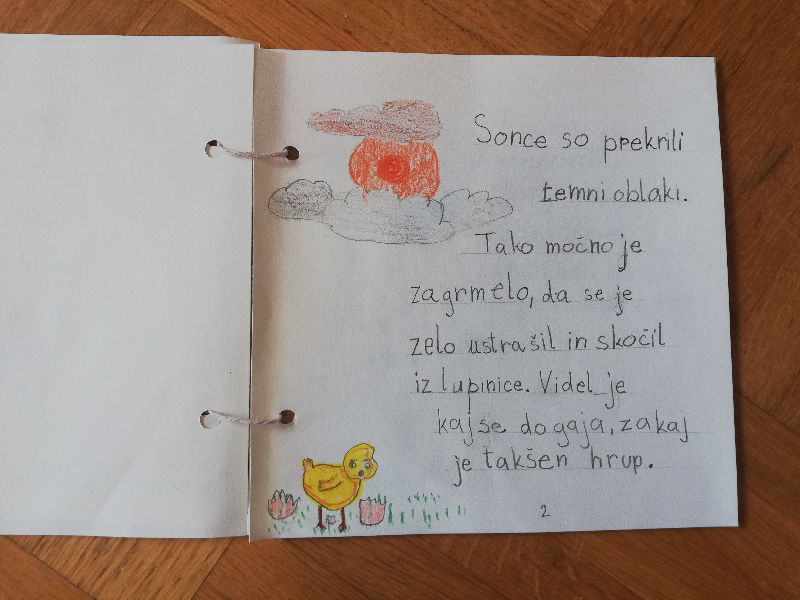 Sonce so prekrili
temni oblaki.
Tako močno je
zagrmelo, da se je
zelo ustrašil in skočil
iz lupinice. Videl je
kaj se dogaja, zakaj
je takšen hrup.
2